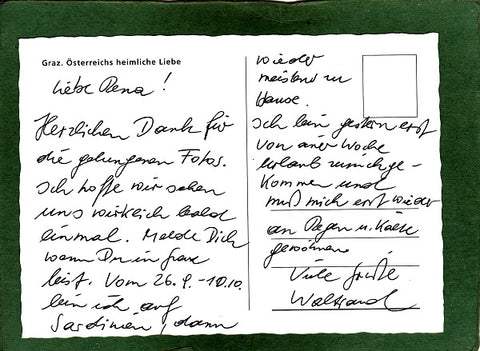 Graz. Österreichs heimliche Liebe
Liebe Rena!
Herzlichen Dank für
die gelungenen Fotos.
Ich hoffe wir sehen
uns wirklich bald
einmal. Melde Dich
wenn Du in Graz
bist. Vom 26.9.-10.10.
bin ich auf
Sardinien, dann
wieder
meistens zu
Hause.
Ich bin gestern erst
von einer Woche
Urlaub zurückge-
kommen und
muß mich erst wieder
an Regen u. Kälte
gewöhnen.
Viele Grüße
Waltraud